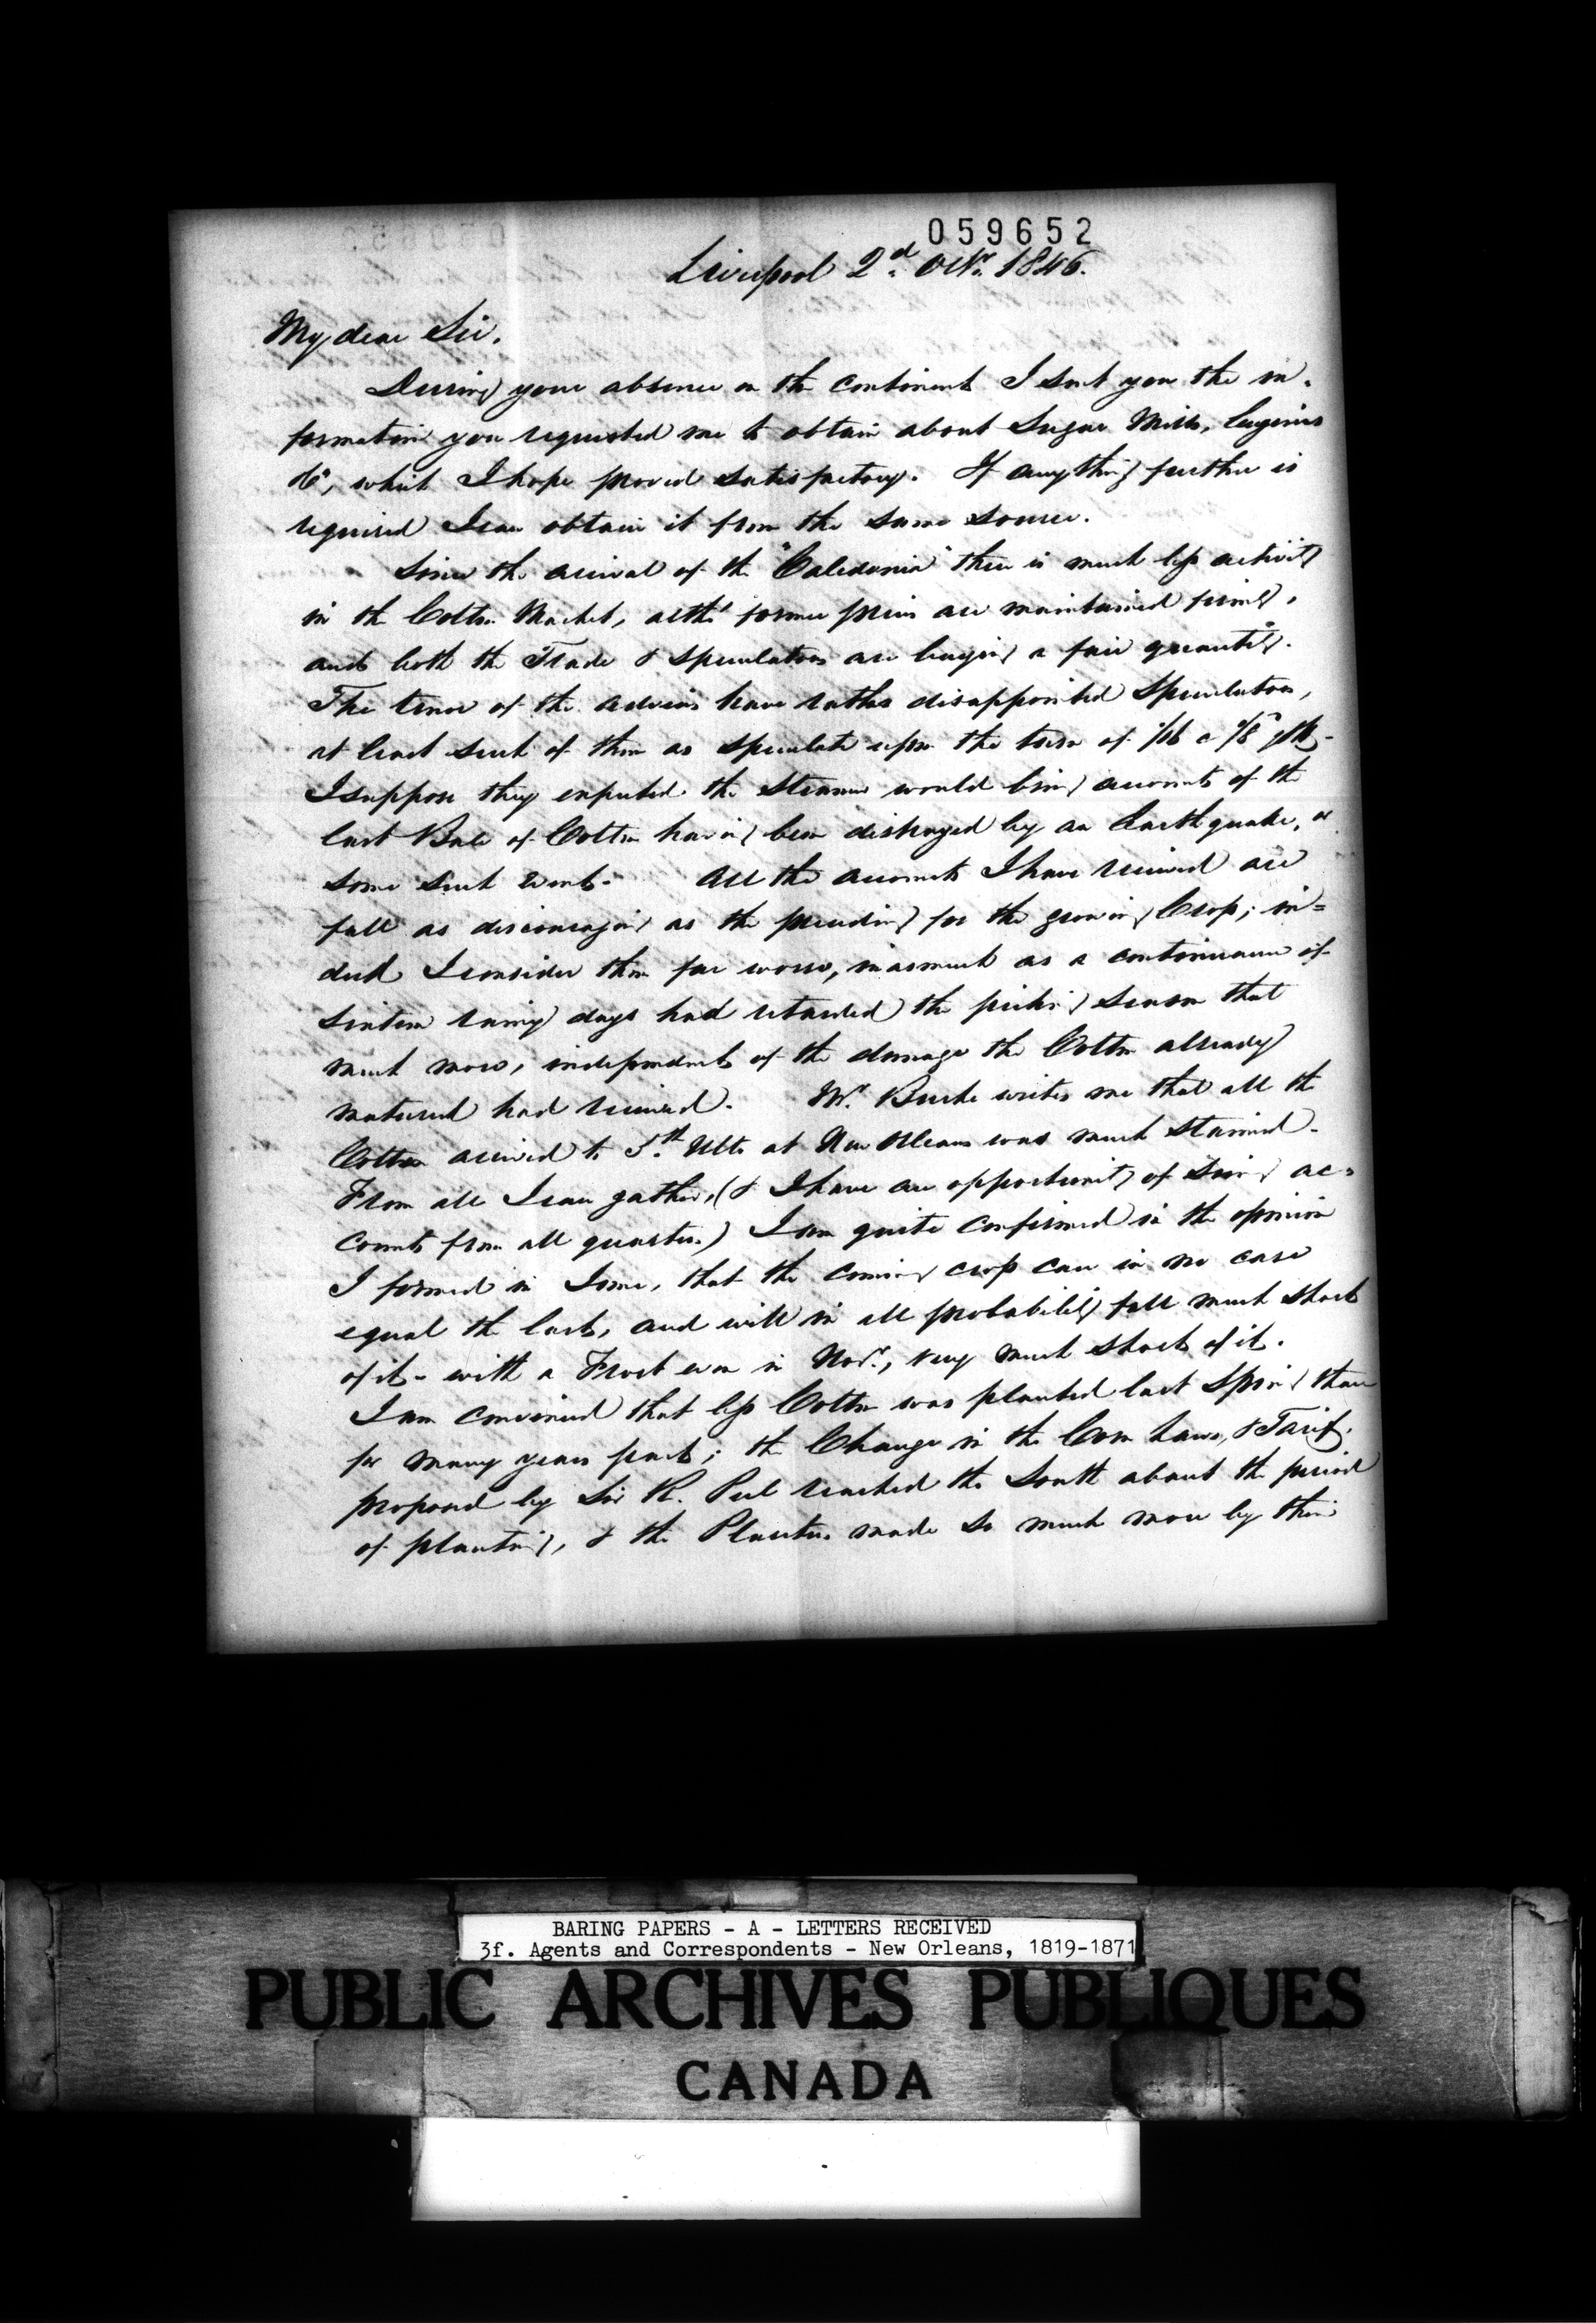 059652
Liverpool 2d. Octr. 1846.
My dear Sir.
During your absence on the continent I sent you the in-
formation you requested me to obtain about Sugar Mills, Engines
&c, which I hope proved satisfactory. If anything further is
required I can obtain it from the same source.
Since the arrival of the "Caledonia" there is much less activity
in the Cotton Market, altho' former prices are maintained firmly,
and both the Trade & speculators are buying a fair quantity.
The tenor of the advices have rather disappointed Speculators,
at least such of them as speculate upon the turn of 1/16 a 1/8 p lb -
I suppose they expected the Steamer would bring accounts of the
last Bale of Cotton having been destroyed by an Earthquake, or
some such event - All the accounts I have received are
full as discouraging as the preceding for the growing Crop; in=
deed I consider them far worse, inasmuch as a continuance of
sixteen rainy days had retarded the picking season that
much more, independent of the damage the Cotton already
matured had received. Mr. Burke writes me that all the
Cotton arrived to 5th. Ulto at New Orleans was much stained -
From all I can gather, (& I have an opportunity of seeing ac=
counts from all quarters) I am quite confirmed in the opinion
I formed in June, that the coming crop can in no case
equal the last, and will in all probability fall much short
of it - with a Frost even in Novr., very much short of it.
I am convinced that less Cotton was planted last Spring than
for many years past; the Change in the Corn Laws, & Tarif.
proposed by Sir R. Peel reached the South about the period
of planting, & the Planters made so much more by their
BARING PAPERS - A - LETTERS RECEIVED
3f. Agents and Correspondents - New Orleans, 1819-1871
PUBLIC ARCHIVES PUBLIQUES
CANADA